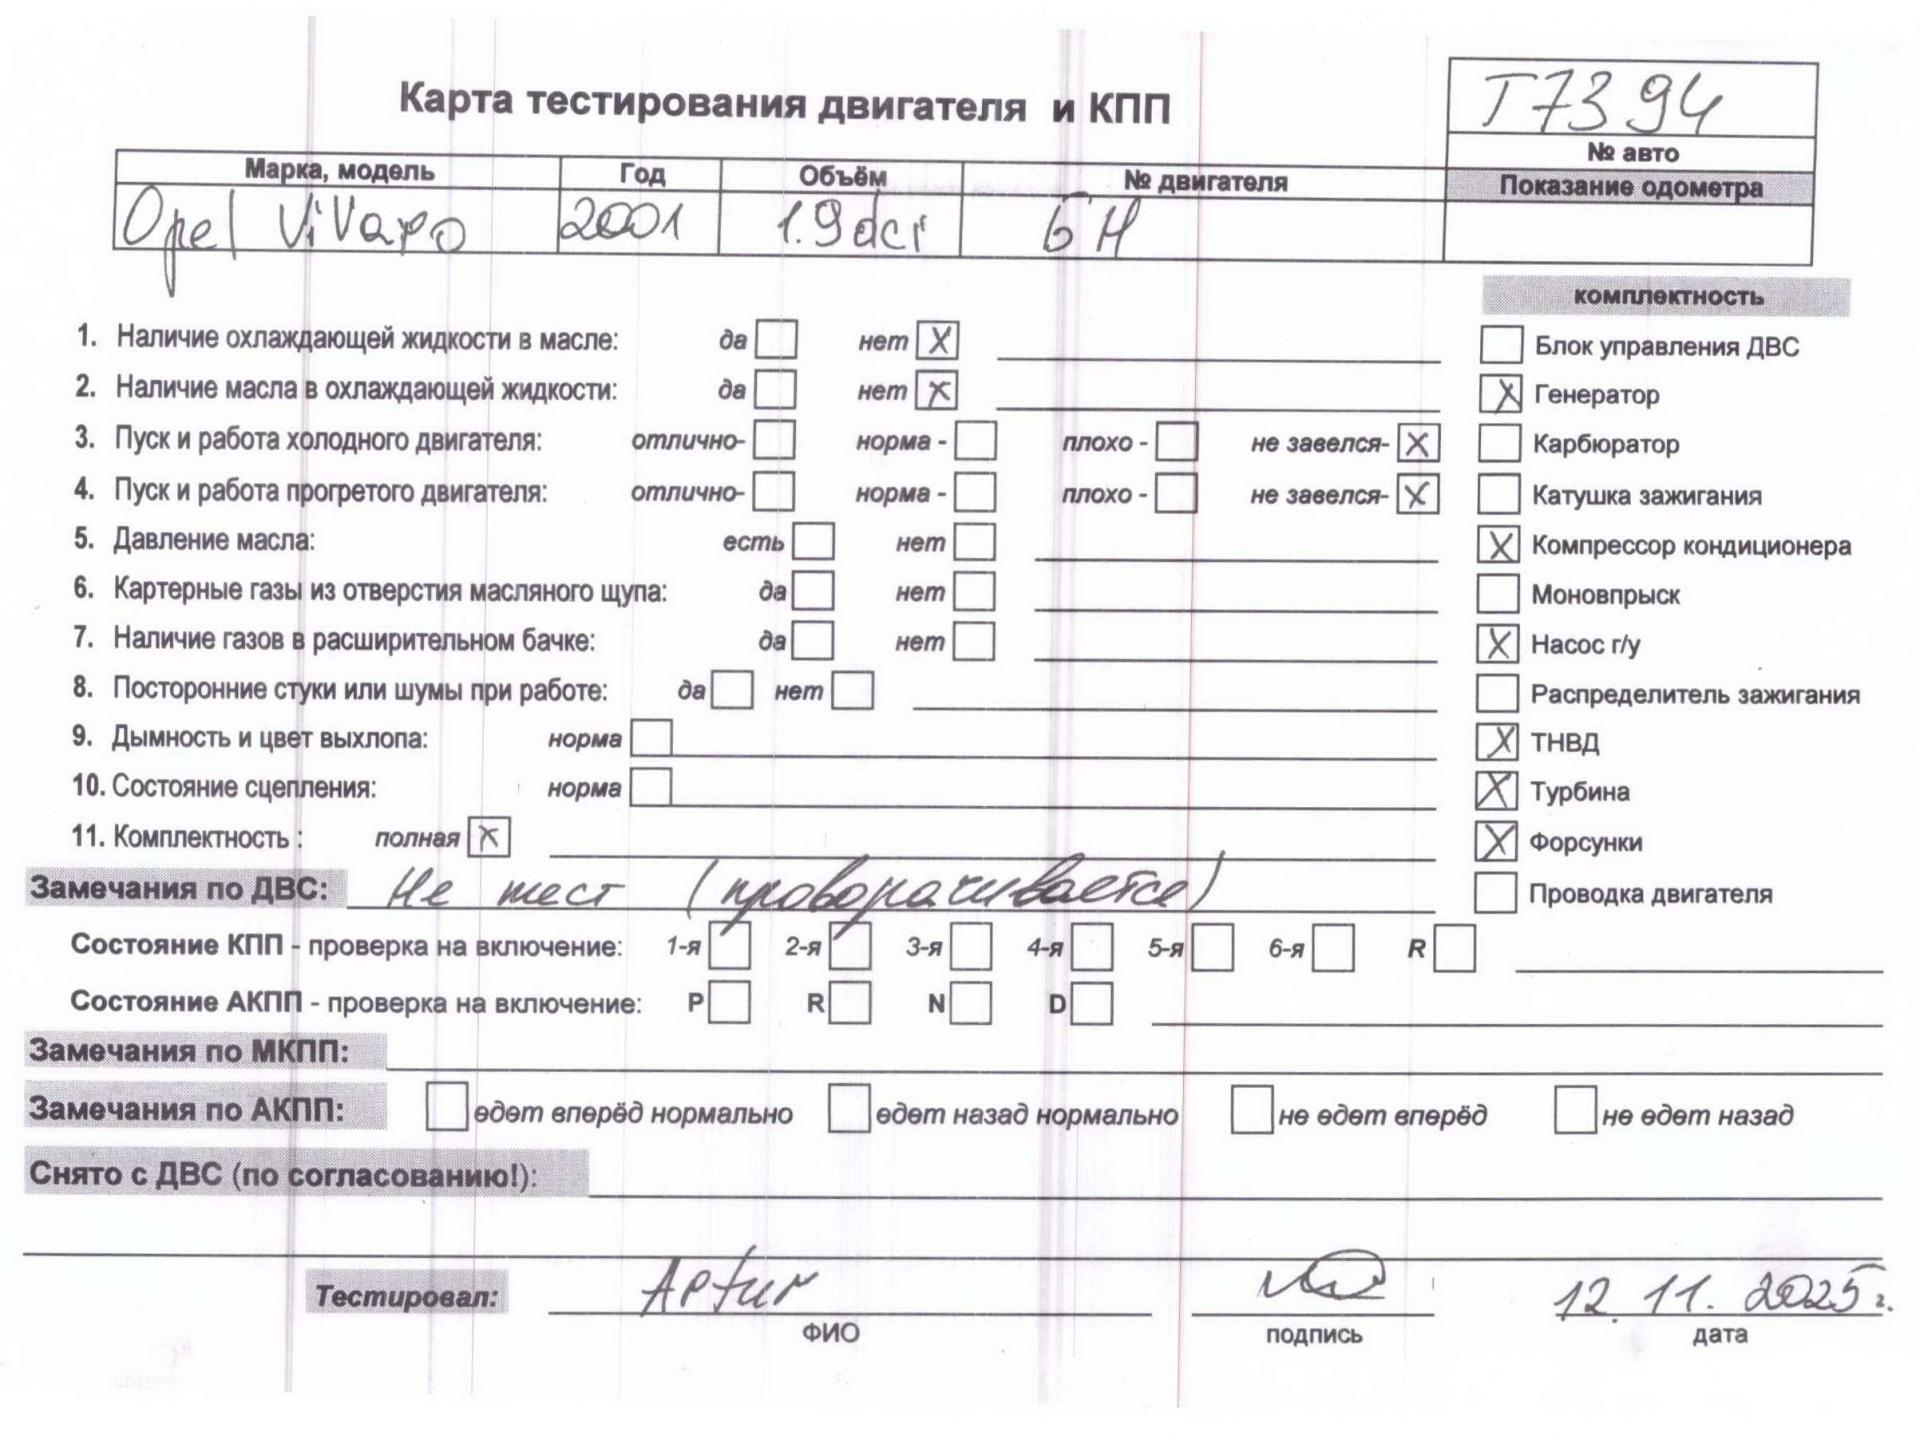 Карта тестирования двигателя и КПП
Т7394
№ авто
Марка, модель Год Объём № двигателя Показание одометра
Opel ViVaро 2001 1.9dci БН
комплектность
1. Наличие охлаждающей жидкости в масле: да нет X
Блок управления ДВС
2. Наличие масла в охлаждающей жидкости: да нет X
X Генератор
3. Пуск и работа холодного двигателя: отлично- норма - плохо - не завелся- X
Карбюратор
4. Пуск и работа прогретого двигателя: отлично- норма - плохо - не завелся- X
Катушка зажигания
5. Давление масла: есть нет
X Компрессор кондиционера
6. Картерные газы из отверстия масляного щупа: да нет
Моновпрыск
7. Наличие газов в расширительном бачке: да нет
X Насос г/у
8. Посторонние стуки или шумы при работе: да нет
Распределитель зажигания
9. Дымность и цвет выхлопа: норма
X ТНВД
10. Состояние сцепления: норма
X Турбина
11. Комплектность : полная X
X Форсунки
Замечания по ДВС: Не тест (проворачивается)
Проводка двигателя
Состояние КПП - проверка на включение: 1-я 2-я 3-я 4-я 5-я 6-я R
Состояние АКПП - проверка на включение: P R N D
Замечания по МКПП:
Замечания по АКПП: едет вперёд нормально едет назад нормально не едет вперёд не едет назад
Снято с ДВС (по согласованию!):
Тестировал: Артur 12.11.2025г.
ФИО подпись дата